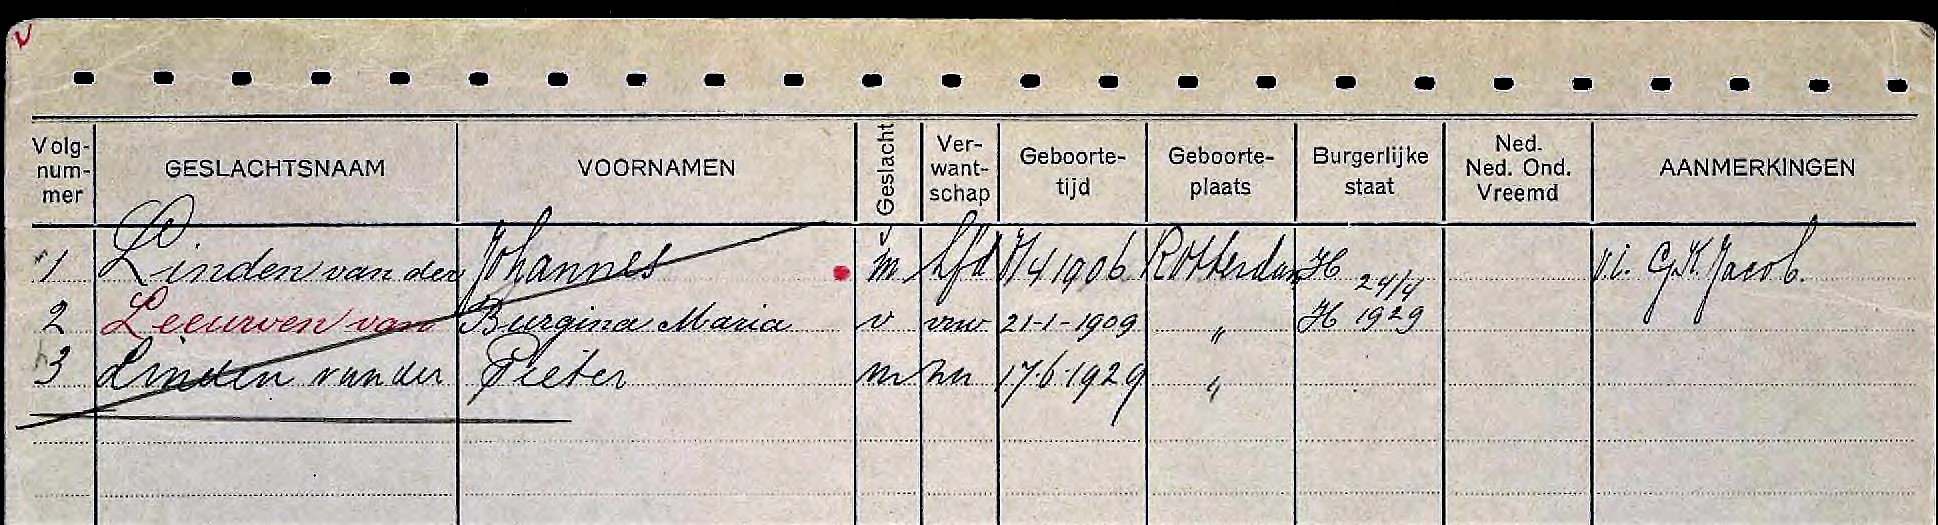 Volg-nummer GESLACHTSNAAM VOORNAMEN Geslacht Ver-want-schap Geboorte-tijd Geboorte-plaats Burgerlijke staat Ned. Ned. Ond. Vreemd AANMERKINGEN
1 Linden van der Johannes m hfd /4 1906 Rotterdam H v.i. G.K. Jacob.
2 Leeuwen van Burgina Maria v vrw 21-1-1909 " H 24/4 1929
3 Linden van der Pieter m zn 17.6.1929 "